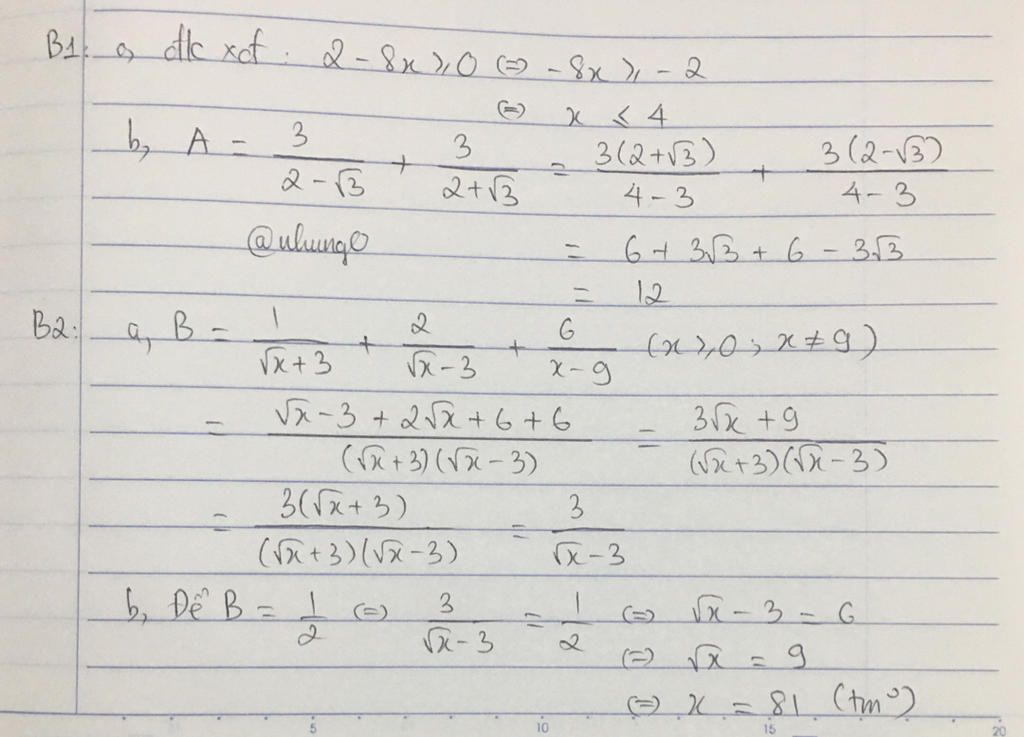 B1: a, đk xđ : 2 - 8x ⩾ 0 ⇔ -8x ⩾ -2
⇔ x ⩽ 4
b, A = 3/(2-√3) + 3/(2+√3) = 3(2+√3)/(4-3) + 3(2-√3)/(4-3)
= 6 + 3√3 + 6 - 3√3
= 12
B2: a, B = 1/(√x+3) + 2/(√x-3) + 6/(x-9) (x ⩾ 0 ; x ≠ 9)
= (√x - 3 + 2√x + 6 + 6)/((√x+3)(√x-3)) = (3√x + 9)/((√x+3)(√x-3))
= 3(√x+3)/((√x+3)(√x-3)) = 3/(√x-3)
b, Để B = 1/2 ⇔ 3/(√x-3) = 1/2 ⇔ √x - 3 = 6
⇔ √x = 9
⇔ x = 81 (tm)
5 10 15 20